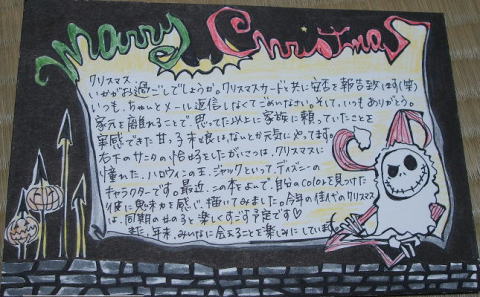 Marry Christmas
クリスマス
いかがお過ごしでしょうか。クリスマスカードと共に安否を報告致します(笑)
いつも、ちゃんとメール返信しなくてごめんなさい。そして、いつもありがとう。
家元を離れることで、思ってた以上に家族に頼っていたことを
実感できた甘っ子も
ないとか元気にやってます。
右下のサンタの恰好をしたがいこつは、クリスマスに
憧れた、ハロウィンの王、ジャックといって、ディズニーの
キャラクターです。最近、この本よんで、自分のcolorを見つけた
彼に魅力を感じ、描いてみました。今年の
クリスマス
は、同期の女の子と楽しくすごす予定です♡
また、年末、みんなに会えることを楽しみにしています